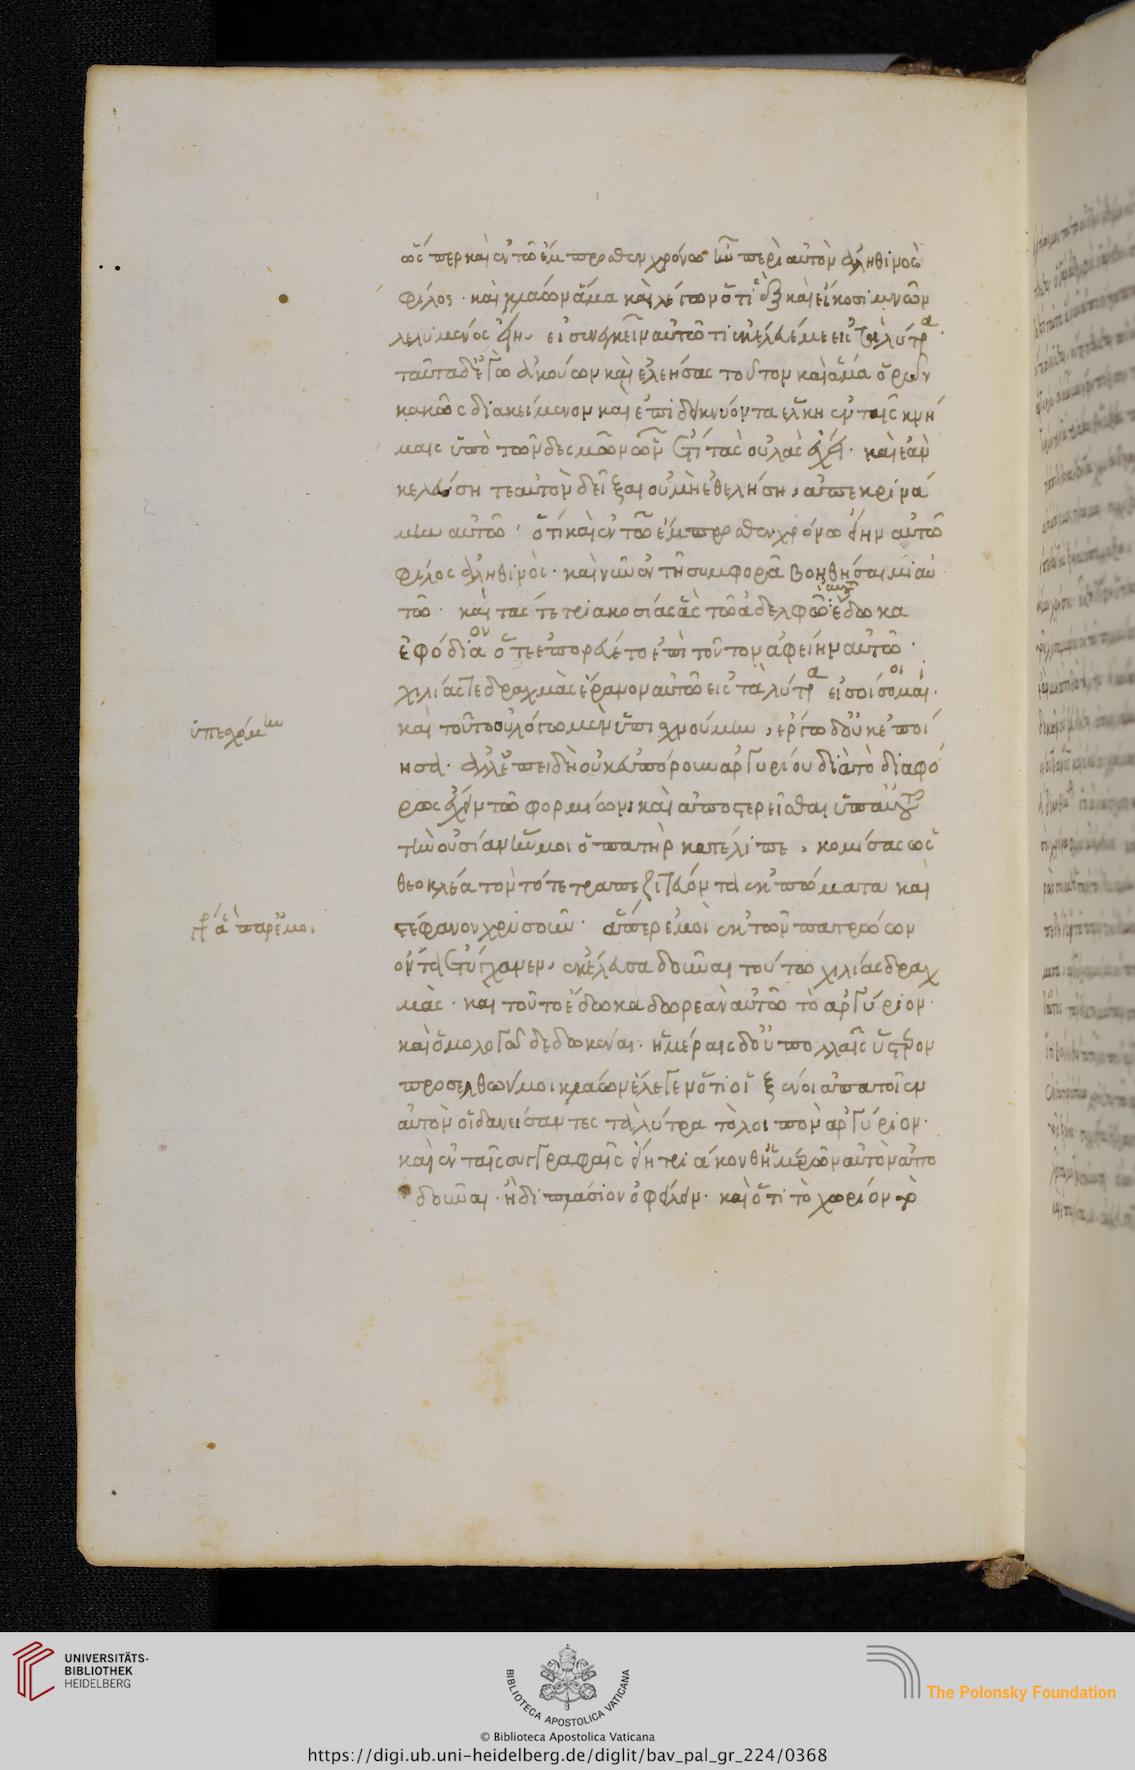 ὥσπερ καὶ ἐν τῷ ἔμπροσθεν χρόνῳ ἦν περὶ αὐτὸν ἀληθινὸς
φίλος· καὶ κλάων ἅμα καὶ λέγων ὅτι ἓξ καὶ εἴκοσι μνῶν
λελυμένος εἴη, εἰσενεγκεῖν αὐτῷ τι ἐκέλευέ με εἰς τὰ λύτρα·
ταῦτα δὲ ἐγὼ ἀκούων καὶ ἐλεήσας τοῦτον καὶ ἅμα ὁρῶν
κακῶς διακείμενον καὶ ἐπιδεικνύοντα ἕλκη ἐν ταῖς κνή
μαις ὑπὸ τῶν δεσμῶν ὧν ἔτι τὰς οὐλὰς ἔχει· καὶ ἐὰν
κελεύσητε αὐτὸν δεῖξαι οὐ μὴ ἐθελήσῃ, ἀπεκρινά
μην αὐτῷ· ὅτι καὶ ἐν τῷ ἔμπροσθεν χρόνῳ εἴην αὐτῷ
φίλος ἀληθινός· καὶ νῦν ἐν τῇ συμφορᾷ βοηθήσαιμι αὐ
τῷ· καὶ τάς τε τριακοσίας ἃς τῷ ἀδελφῷ αὐτοῦ ἔδωκα
ἐφόδιον ὅτε ἐπορεύετο ἐπὶ τοῦτον ἀφείην αὐτῷ·
χιλίας τε δραχμὰς ἔρανον αὐτῷ εἰς τὰ λύτρα εἰσοίσοιμι·
ὑπεσχόμην
καὶ τοῦτο οὐ λόγῳ μὲν ὑπισχνούμην, ἔργῳ δ' οὐκ ἐποί
ησα· ἀλλ' ἐπειδὴ οὐκ εὐπόρουν ἀργυρίου διὰ τὸ διαφό
ρως ἔχειν τῷ φορμίωνι καὶ ἀποστερεῖσθαι ὑπ' αὐτοῦ
τὴν οὐσίαν ἥν μοι ὁ πατὴρ κατέλιπε, κομίσας ὡς
θεοκλέα τὸν τότε τραπεζιτεύοντα ἐκπώματα καὶ
γρ. ἃ παρ' ἐμοὶ
στέφανον χρυσοῦν· ἅπερ ἐμοὶ ἐκ τῶν πατρῴων
ὄντα ἐτύγχανεν, ἐκέλευσα δοῦναι τούτῳ χιλίας δραχ
μάς· καὶ τοῦτο ἔδωκα δωρεὰν αὐτῷ τὸ ἀργύριον·
καὶ ὁμολογῶ δεδωκέναι· ἡμέραις δ' οὐ πολλαῖς ὕστερον
προσελθών μοι κλάων ἔλεγεν ὅτι οἱ ξένοι ἀπαιτοῖεν
αὐτὸν οἱ δανείσαντες τὰ λύτρα τὸ λοιπὸν ἀργύριον·
καὶ ἐν ταῖς συγγραφαῖς εἴη τριάκονθ' ἡμερῶν αὐτὸν ἀπο
δοῦναι· ἢ διπλάσιον ὀφείλειν· καὶ ὅτι τὸ χωρίον
UNIVERSITÄTS-
BIBLIOTHEK
HEIDELBERG
BIBLIOTECA APOSTOLICA VATICANA
The Polonsky Foundation
© Biblioteca Apostolica Vaticana
https://digi.ub.uni-heidelberg.de/diglit/bav_pal_gr_224/0368